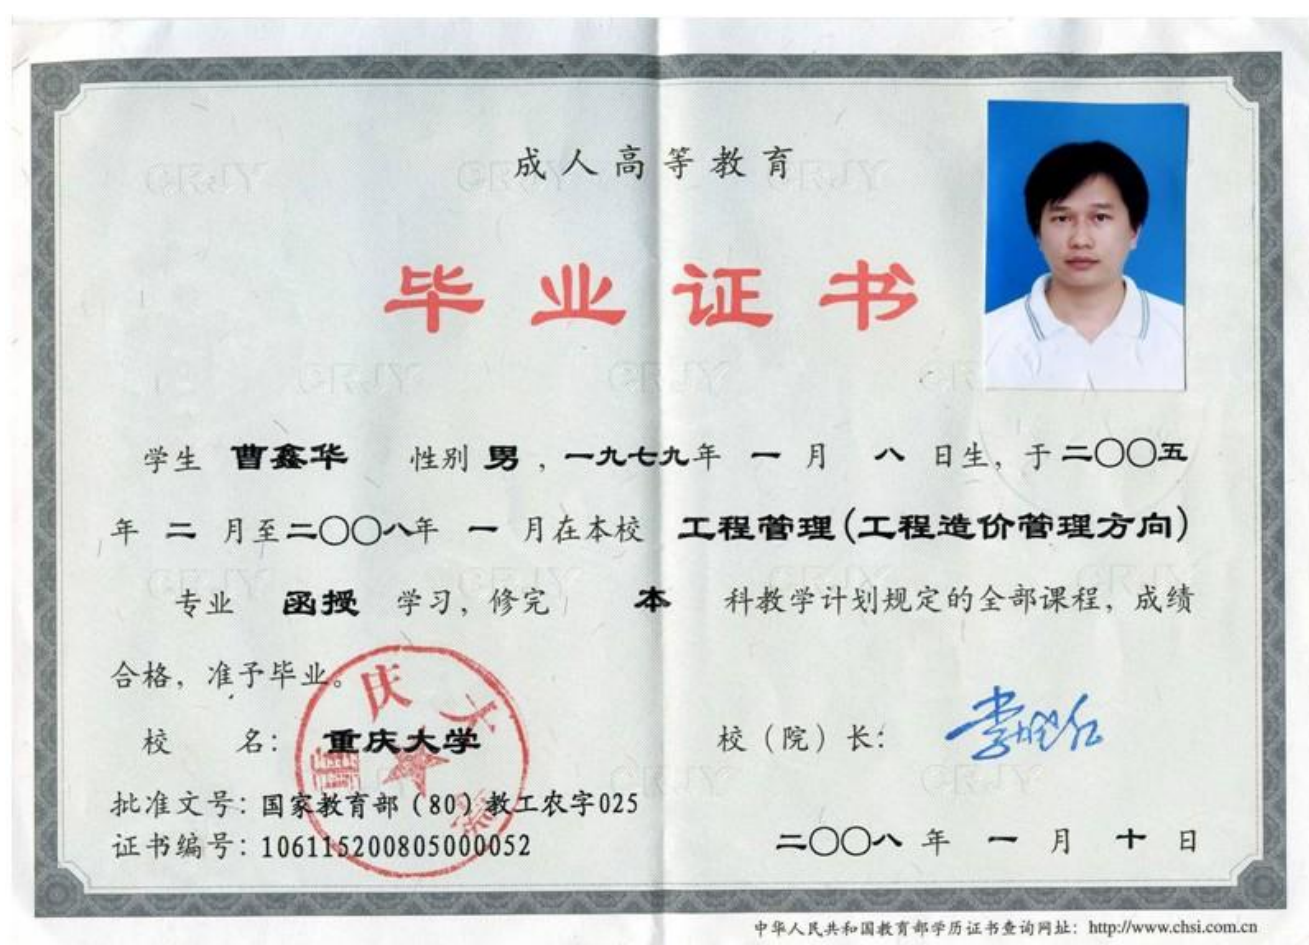 成人高等教育
毕业证书
学生 曹鑫华 性别 男，一九七九年 一 月 八 日生，于二〇〇五
年 二 月至二〇〇八年 一 月在本校 工程管理(工程造价管理方向)
专业 函授 学习，修完 本 科教学计划规定的全部课程，成绩
合格，准予毕业。
校 名：重庆大学
校（院）长：
批准文号：国家教育部（80）教工农字025
证书编号：106115200805000052
二〇〇八年 一 月 十 日
中华人民共和国教育部学历证书查询网址：http://www.chsi.com.cn